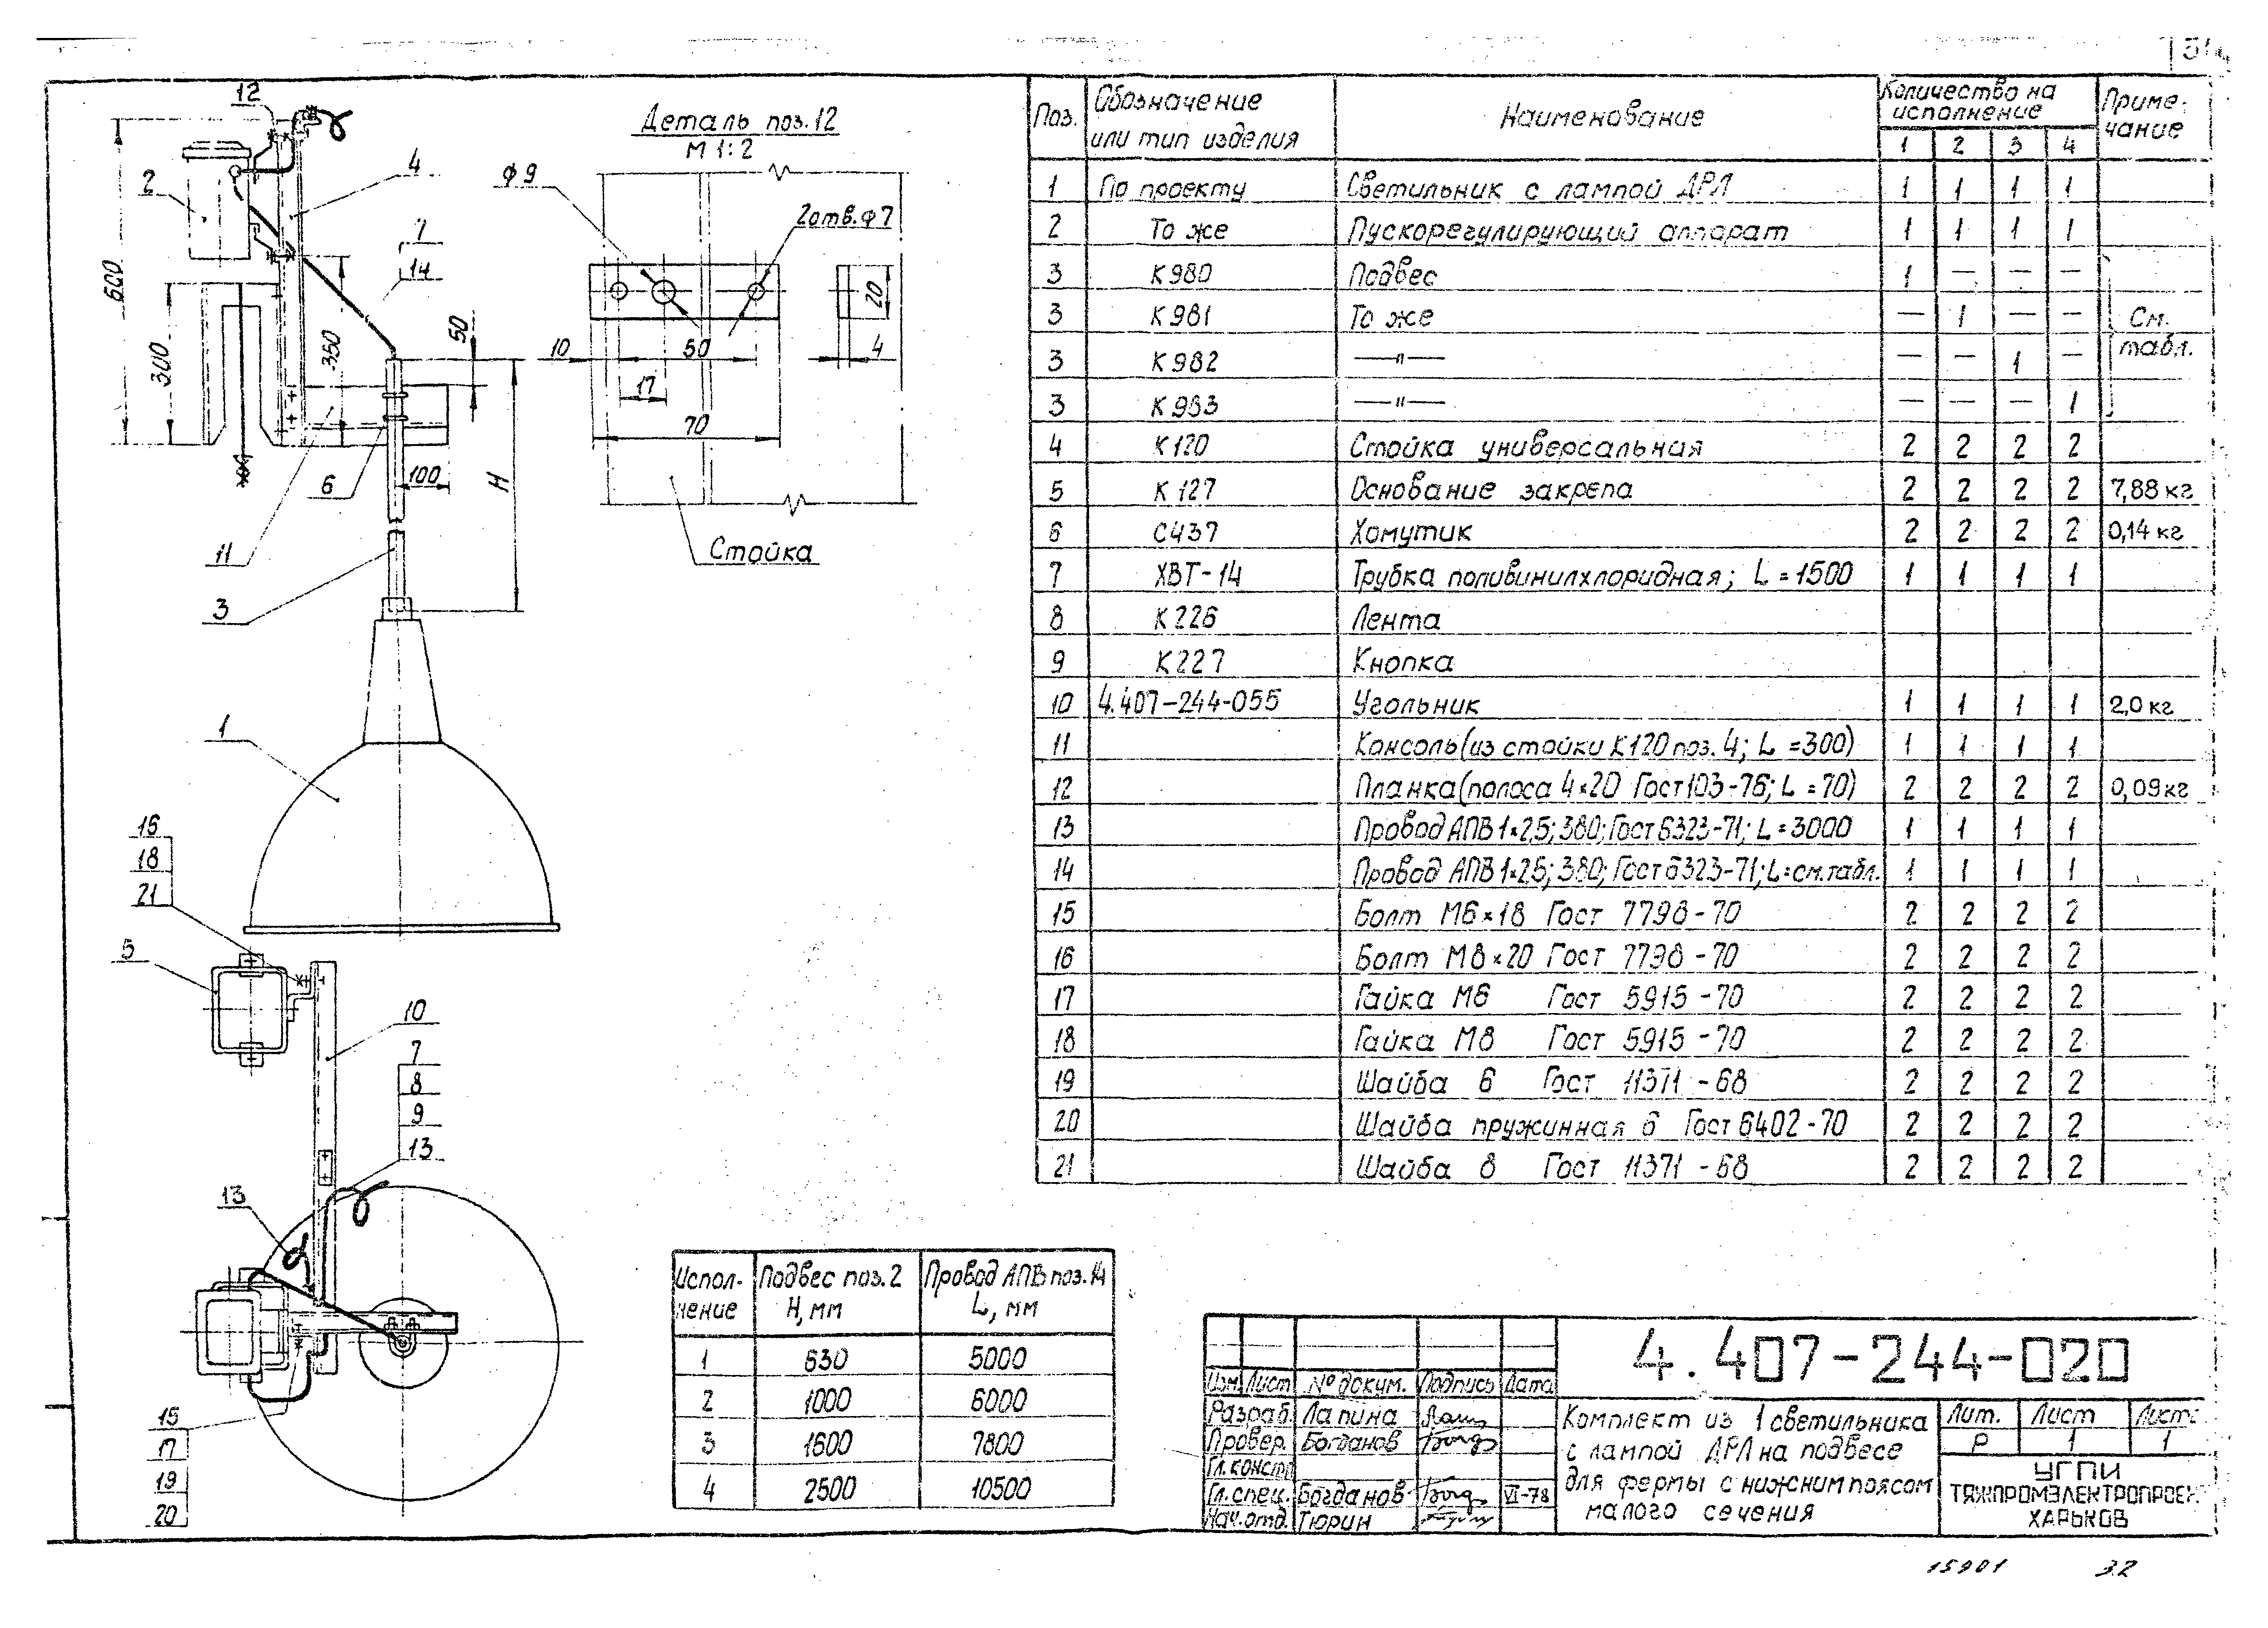 51
12
2
4
7
14
600
300
350
50
100
H
6
11
3
1
Деталь поз. 12
М 1:2
ф9
2отв. ф7
20
10
50
4
17
70
Стойка
16
18
21
5
10
7
8
9
13
13
15
17
19
20
Поз. Обозначение или тип изделия Наименование Количество на исполнение Примечание
1 2 3 4
1 По проекту Светильник с лампой ДРЛ 1 1 1 1
2 То же Пускорегулирующий аппарат 1 1 1 1
3 К980 Подвес 1 — — —
3 К981 То же — 1 — — См.
3 К982 —"— — — 1 — табл.
3 К983 —"— — — — 1
4 К120 Стойка универсальная 2 2 2 2
5 К127 Основание закрепа 2 2 2 2 7,88 кг
6 С437 Хомутик 2 2 2 2 0,14 кг
7 ХВТ-14 Трубка поливинилхлоридная; L=1500 1 1 1 1
8 К226 Лента
9 К227 Кнопка
10 4.407-244-055 Угольник 1 1 1 1 2,0 кг
11 Консоль (из стойки К120 поз. 4; L=300) 1 1 1 1
12 Планка (полоса 4×20 Гост 103-76; L=70) 2 2 2 2 0,09 кг
13 Провод АПВ 1×2,5; 380; Гост 6323-71; L=3000 1 1 1 1
14 Провод АПВ 1×2,5; 380; Гост 6323-71; L=см. табл. 1 1 1 1
15 Болт М6×18 Гост 7798-70 2 2 2 2
16 Болт М8×20 Гост 7798-70 2 2 2 2
17 Гайка М6 Гост 5915-70 2 2 2 2
18 Гайка М8 Гост 5915-70 2 2 2 2
19 Шайба 6 Гост 11371-68 2 2 2 2
20 Шайба пружинная 6 Гост 6402-70 2 2 2 2
21 Шайба 8 Гост 11371-68 2 2 2 2
Исполнение Подвес поз. 2 H, мм Провод АПВ поз. 14 L, мм
1 630 5000
2 1000 6000
3 1600 7800
4 2500 10500
4.407-244-020
Изм. Лист № докум. Подпись Дата
Разраб. Лапина
Провер. Богданов
Гл. констр.
Гл. спец. Богданов VI-78
Нач. отд. Тюрин
Комплект из 1 светильника
с лампой ДРЛ на подвесе
для фермы с нижним поясом
малого сечения
Лит. Лист Листо
Р 1 1
УГПИ
ТЯЖПРОМЭЛЕКТРОПРОЕК
ХАРЬКОВ
15901 32